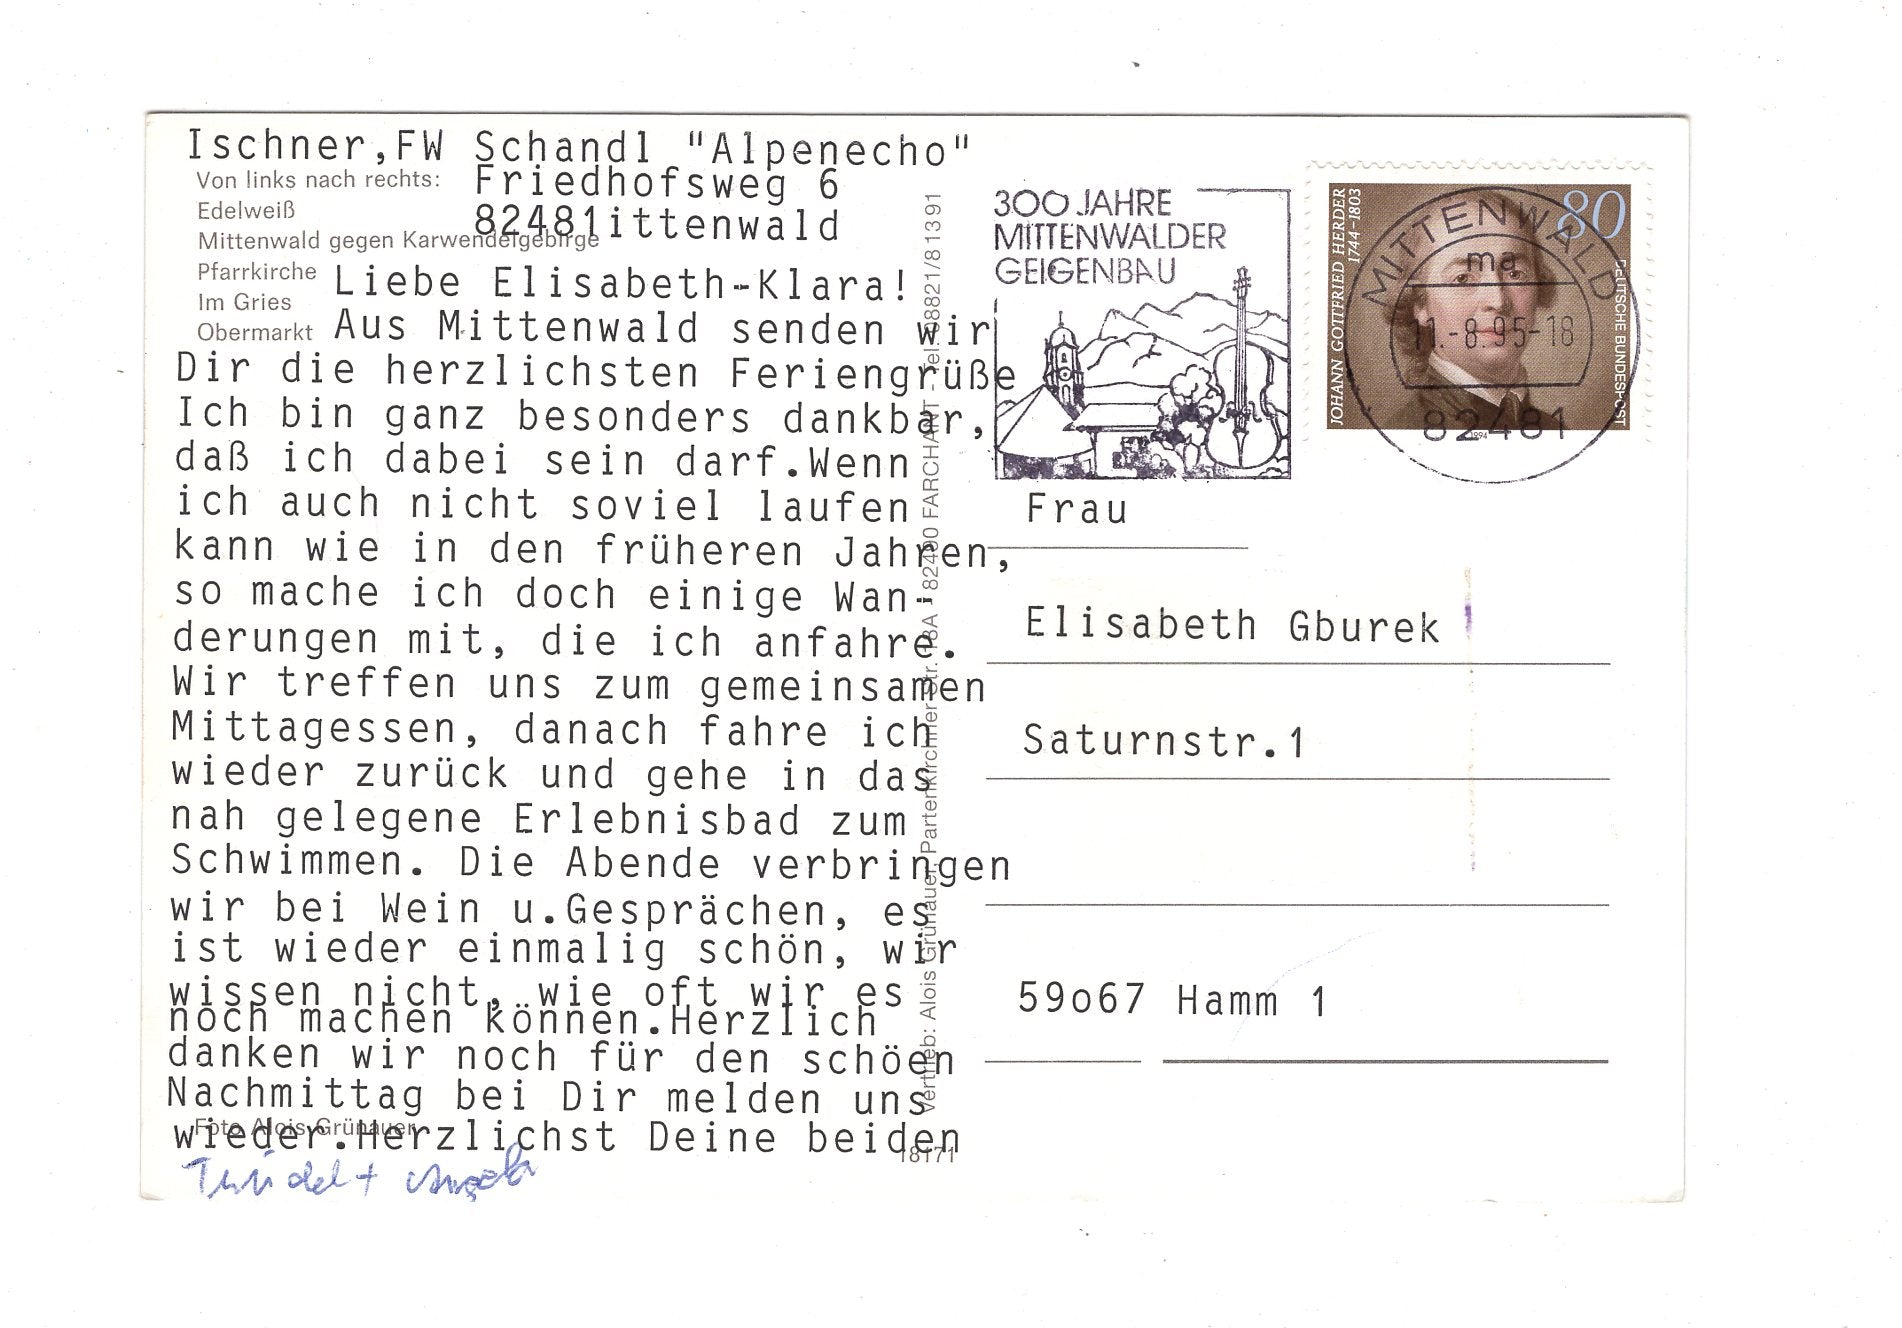 Ischner,FW Schandl "Alpenecho"
Friedhofsweg 6
82481ittenwald
Von links nach rechts:
Edelweiß
Mittenwald gegen Karwendelgebirge
Pfarrkirche
Im Gries
Obermarkt
Liebe Elisabeth-Klara!
Aus Mittenwald senden wir
Dir die herzlichsten Feriengrüße
Ich bin ganz besonders dankbar,
daß ich dabei sein darf.Wenn
ich auch nicht soviel laufen
kann wie in den früheren Jahren,
so mache ich doch einige Wan-
derungen mit, die ich anfahre.
Wir treffen uns zum gemeinsamen
Mittagessen, danach fahre ich
wieder zurück und gehe in das
nah gelegene Erlebnisbad zum
Schwimmen. Die Abende verbringen
wir bei Wein u.Gesprächen, es
ist wieder einmalig schön, wir
wissen nicht, wie oft wir es
noch machen können.Herzlich
danken wir noch für den schöen
Nachmittag bei Dir melden uns
wieder.Herzlichst Deine beiden
Foto Alois Grünauer
18171
Vertrieb: Alois Grünauer, Partenkirchner Str. 18A · 82490 FARCHANT · Tel. 08821/81391
300 JAHRE
MITTENWALDER
GEIGENBAU
JOHANN GOTTFRIED HERDER
1744-1803
80
DEUTSCHE BUNDESPOST
1994
MITTENWALD
ma
11.-8.95-18
82481
Frau
Elisabeth Gburek
Saturnstr.1
59o67 Hamm 1